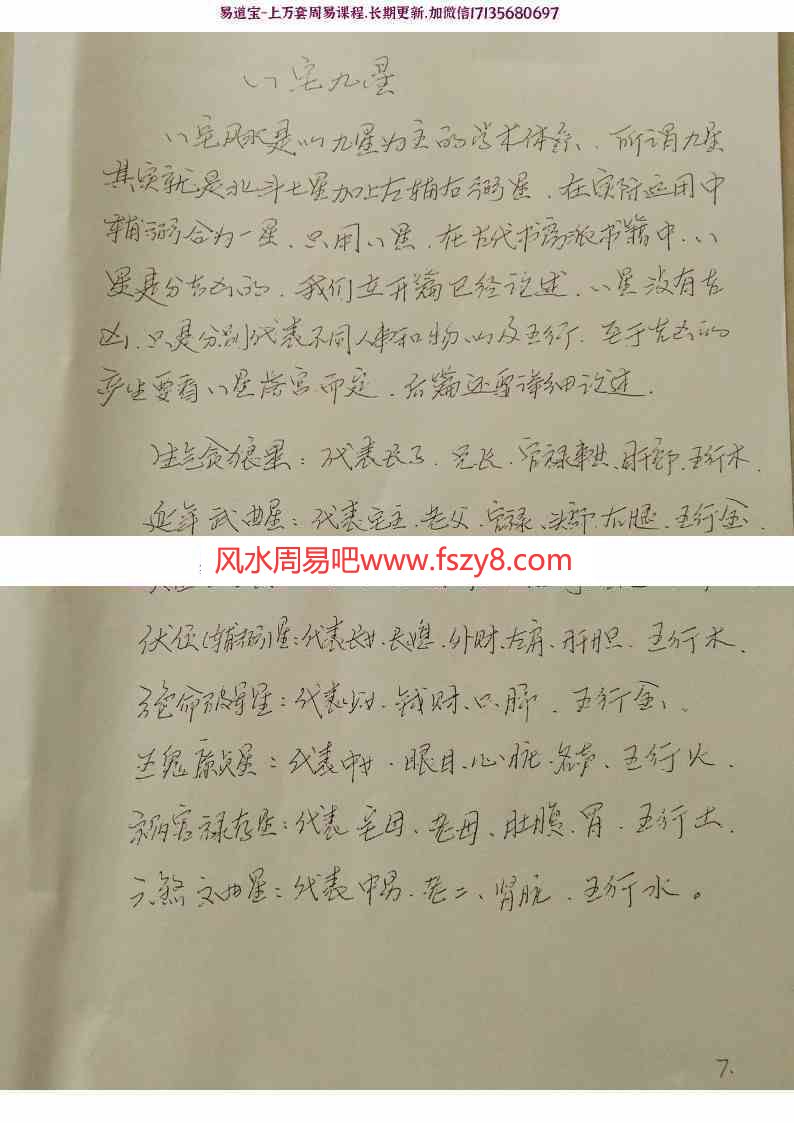 易道宝-上万套周易课程.长期更新.加微信17135680697
八宅九星
八宅风水是以九星为主的学术体系、所谓九星
其实就是北斗七星加上左辅右弼星、在实际运用中
辅弼合为一星、只用八星、在古代书籍中、八
星是分吉凶的、我们立开篇已经论述、八星没有吉
凶、只是分别代表不同人事和物以及五行、至于吉凶的
产生要看八星落宫而定、后篇还要详细论述.
生气贪狼星：代表长子、兄长、官禄事业、肝部、五行木.
延年武曲星：代表宅主、老父、官禄、头部、右腿、五行金、
风水周易吧www.fszy8.com
伏位(辅弼)星：代表长女、长媳、外财、左肩、肝胆、五行木.
绝命破军星：代表少女、钱财、口、肺、五行金、.
五鬼廉贞星：代表中女、眼目、心脏、名声、五行火.
祸害禄存星：代表宅母、老母、肚腹、胃、五行土.
六煞文曲星：代表中男、老二、肾脘、五行水。
7.